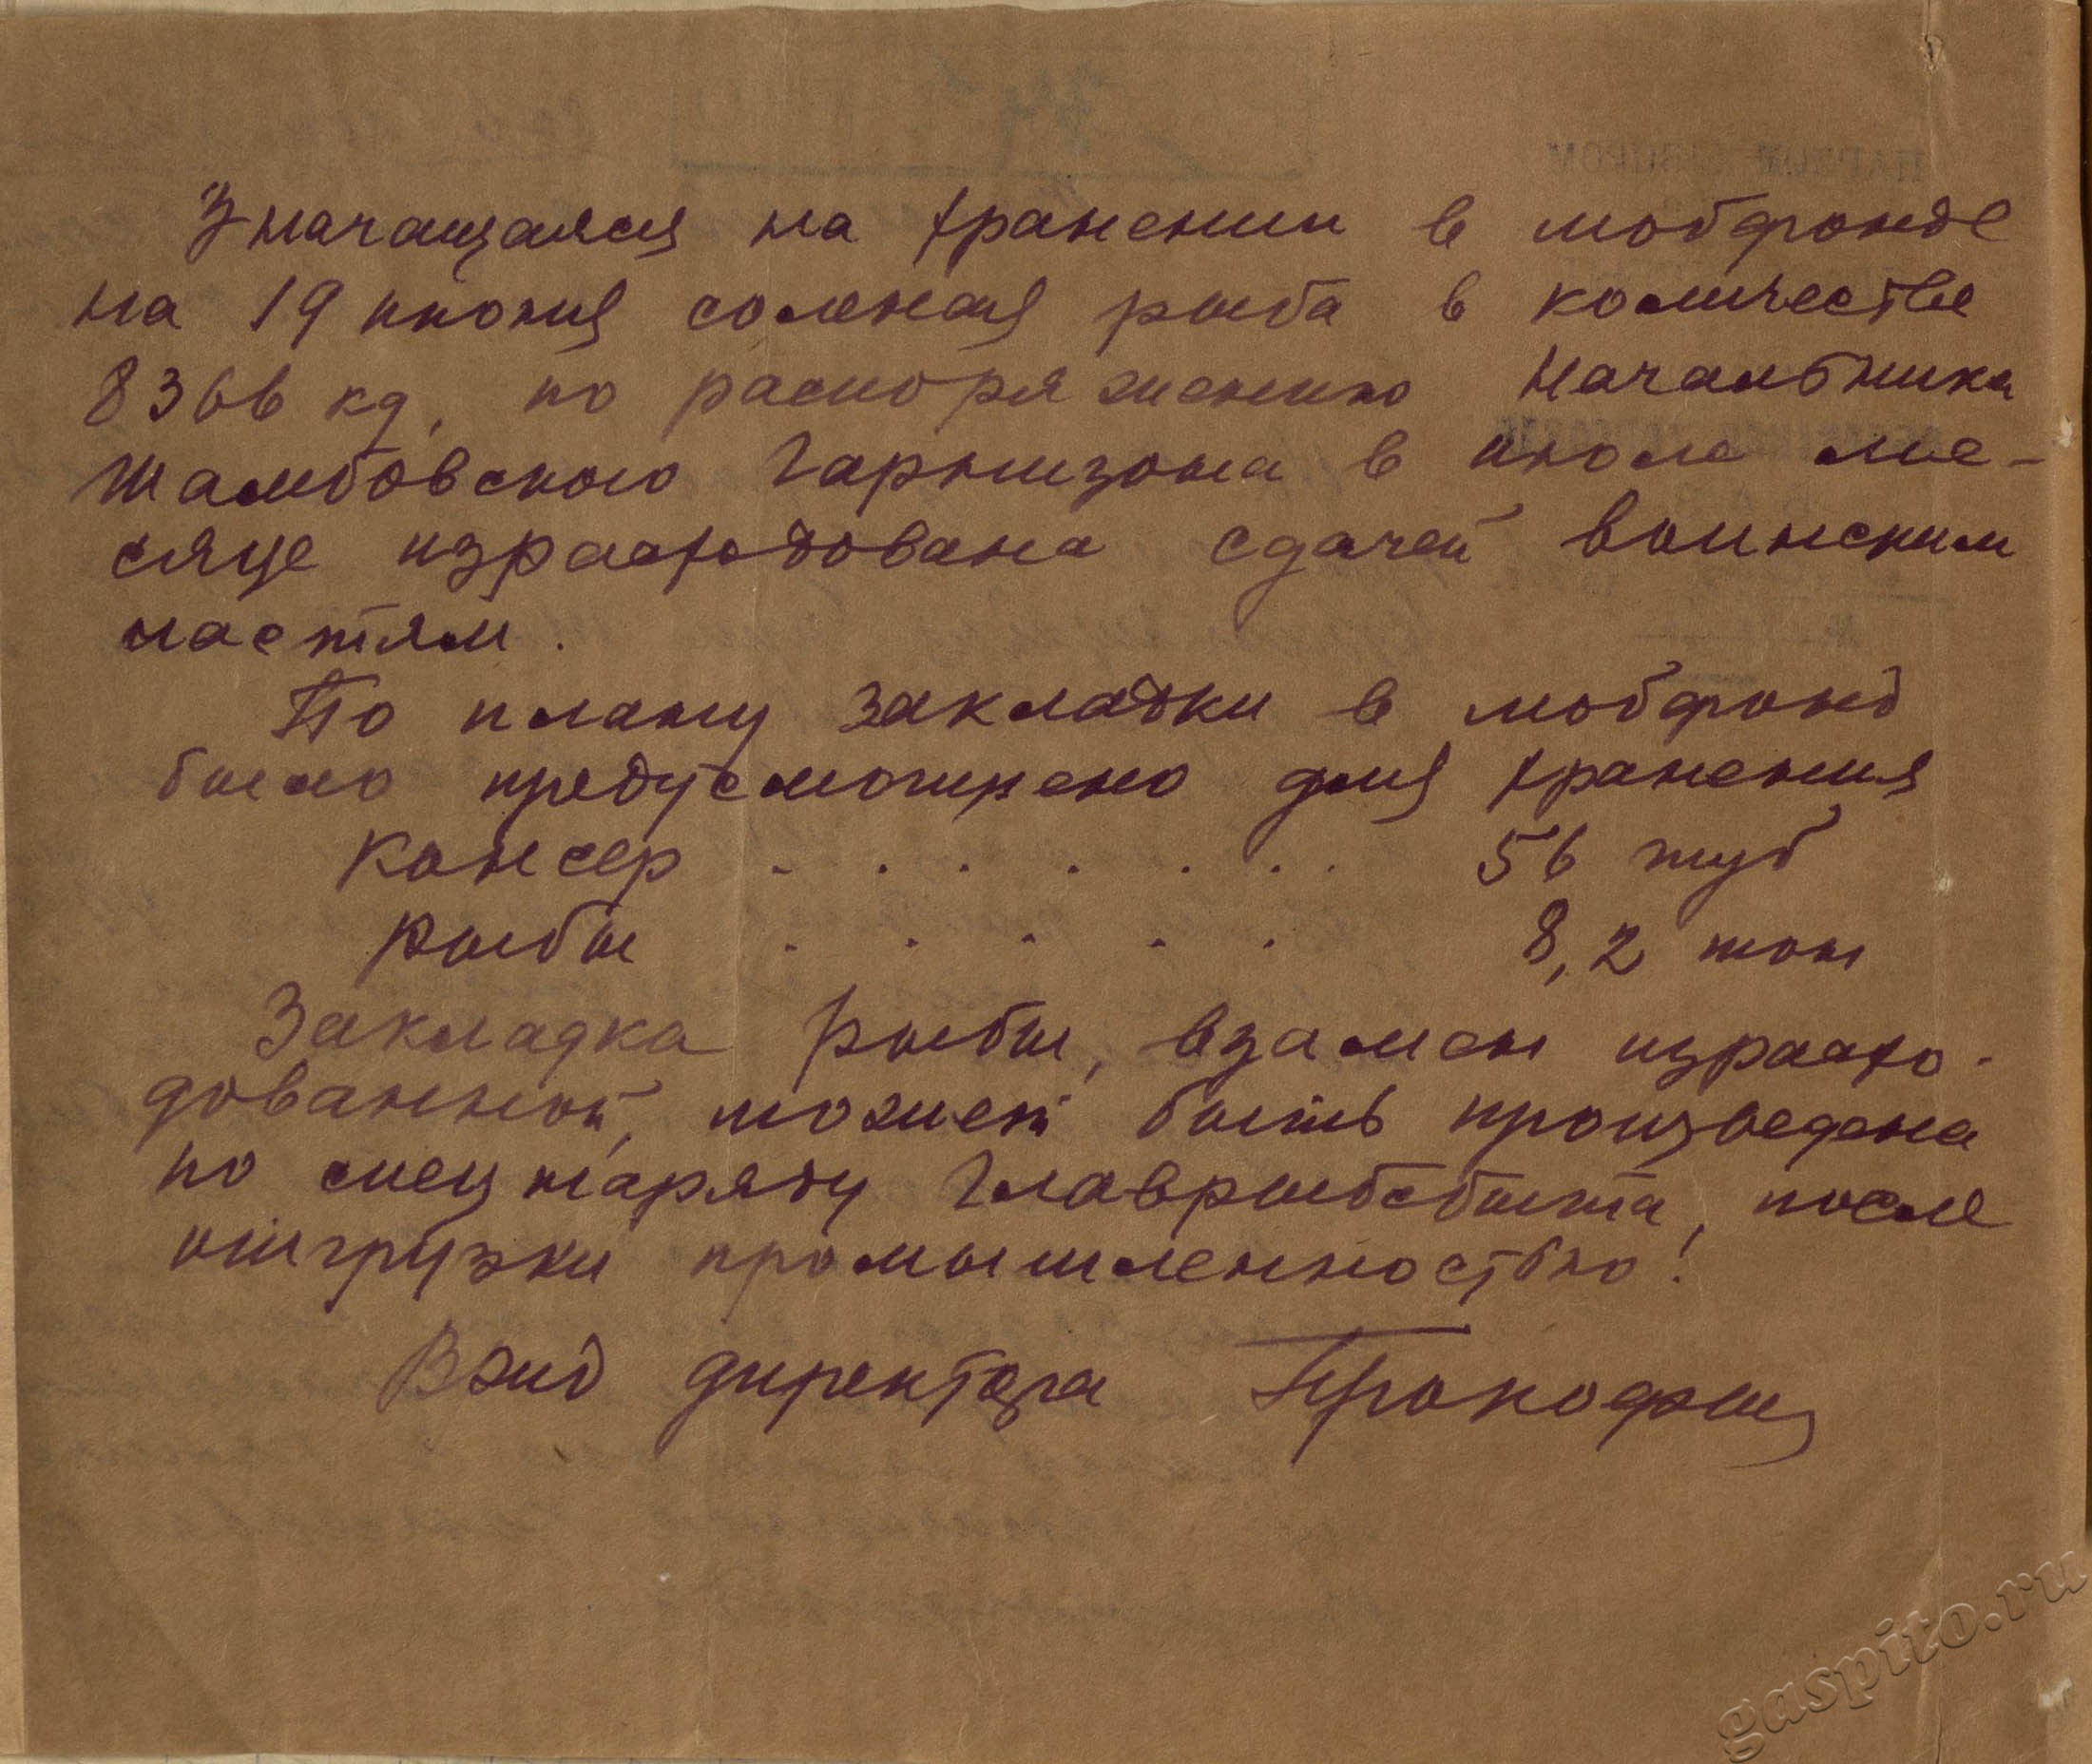 Значащаяся на хранении в мобфонде
на 19 июня соленая рыба в количестве
8366 кг, по распоряжению Начальника
Тамбовского Гарнизона в июле ме-
сяце израсходована сдачей воинским
частям.
По плану закладки в мобфонд
было предусмотрено для хранения
Консер . . . . . . . 56 туб
рыбы . . . . . 8,2 тон
Закладка рыбы, взамен израсхо-
дованной, может быть произведена
по спецнаряду Главрыбсбыта, после
отгрузки промышленностью!
директора
gaspito.ru